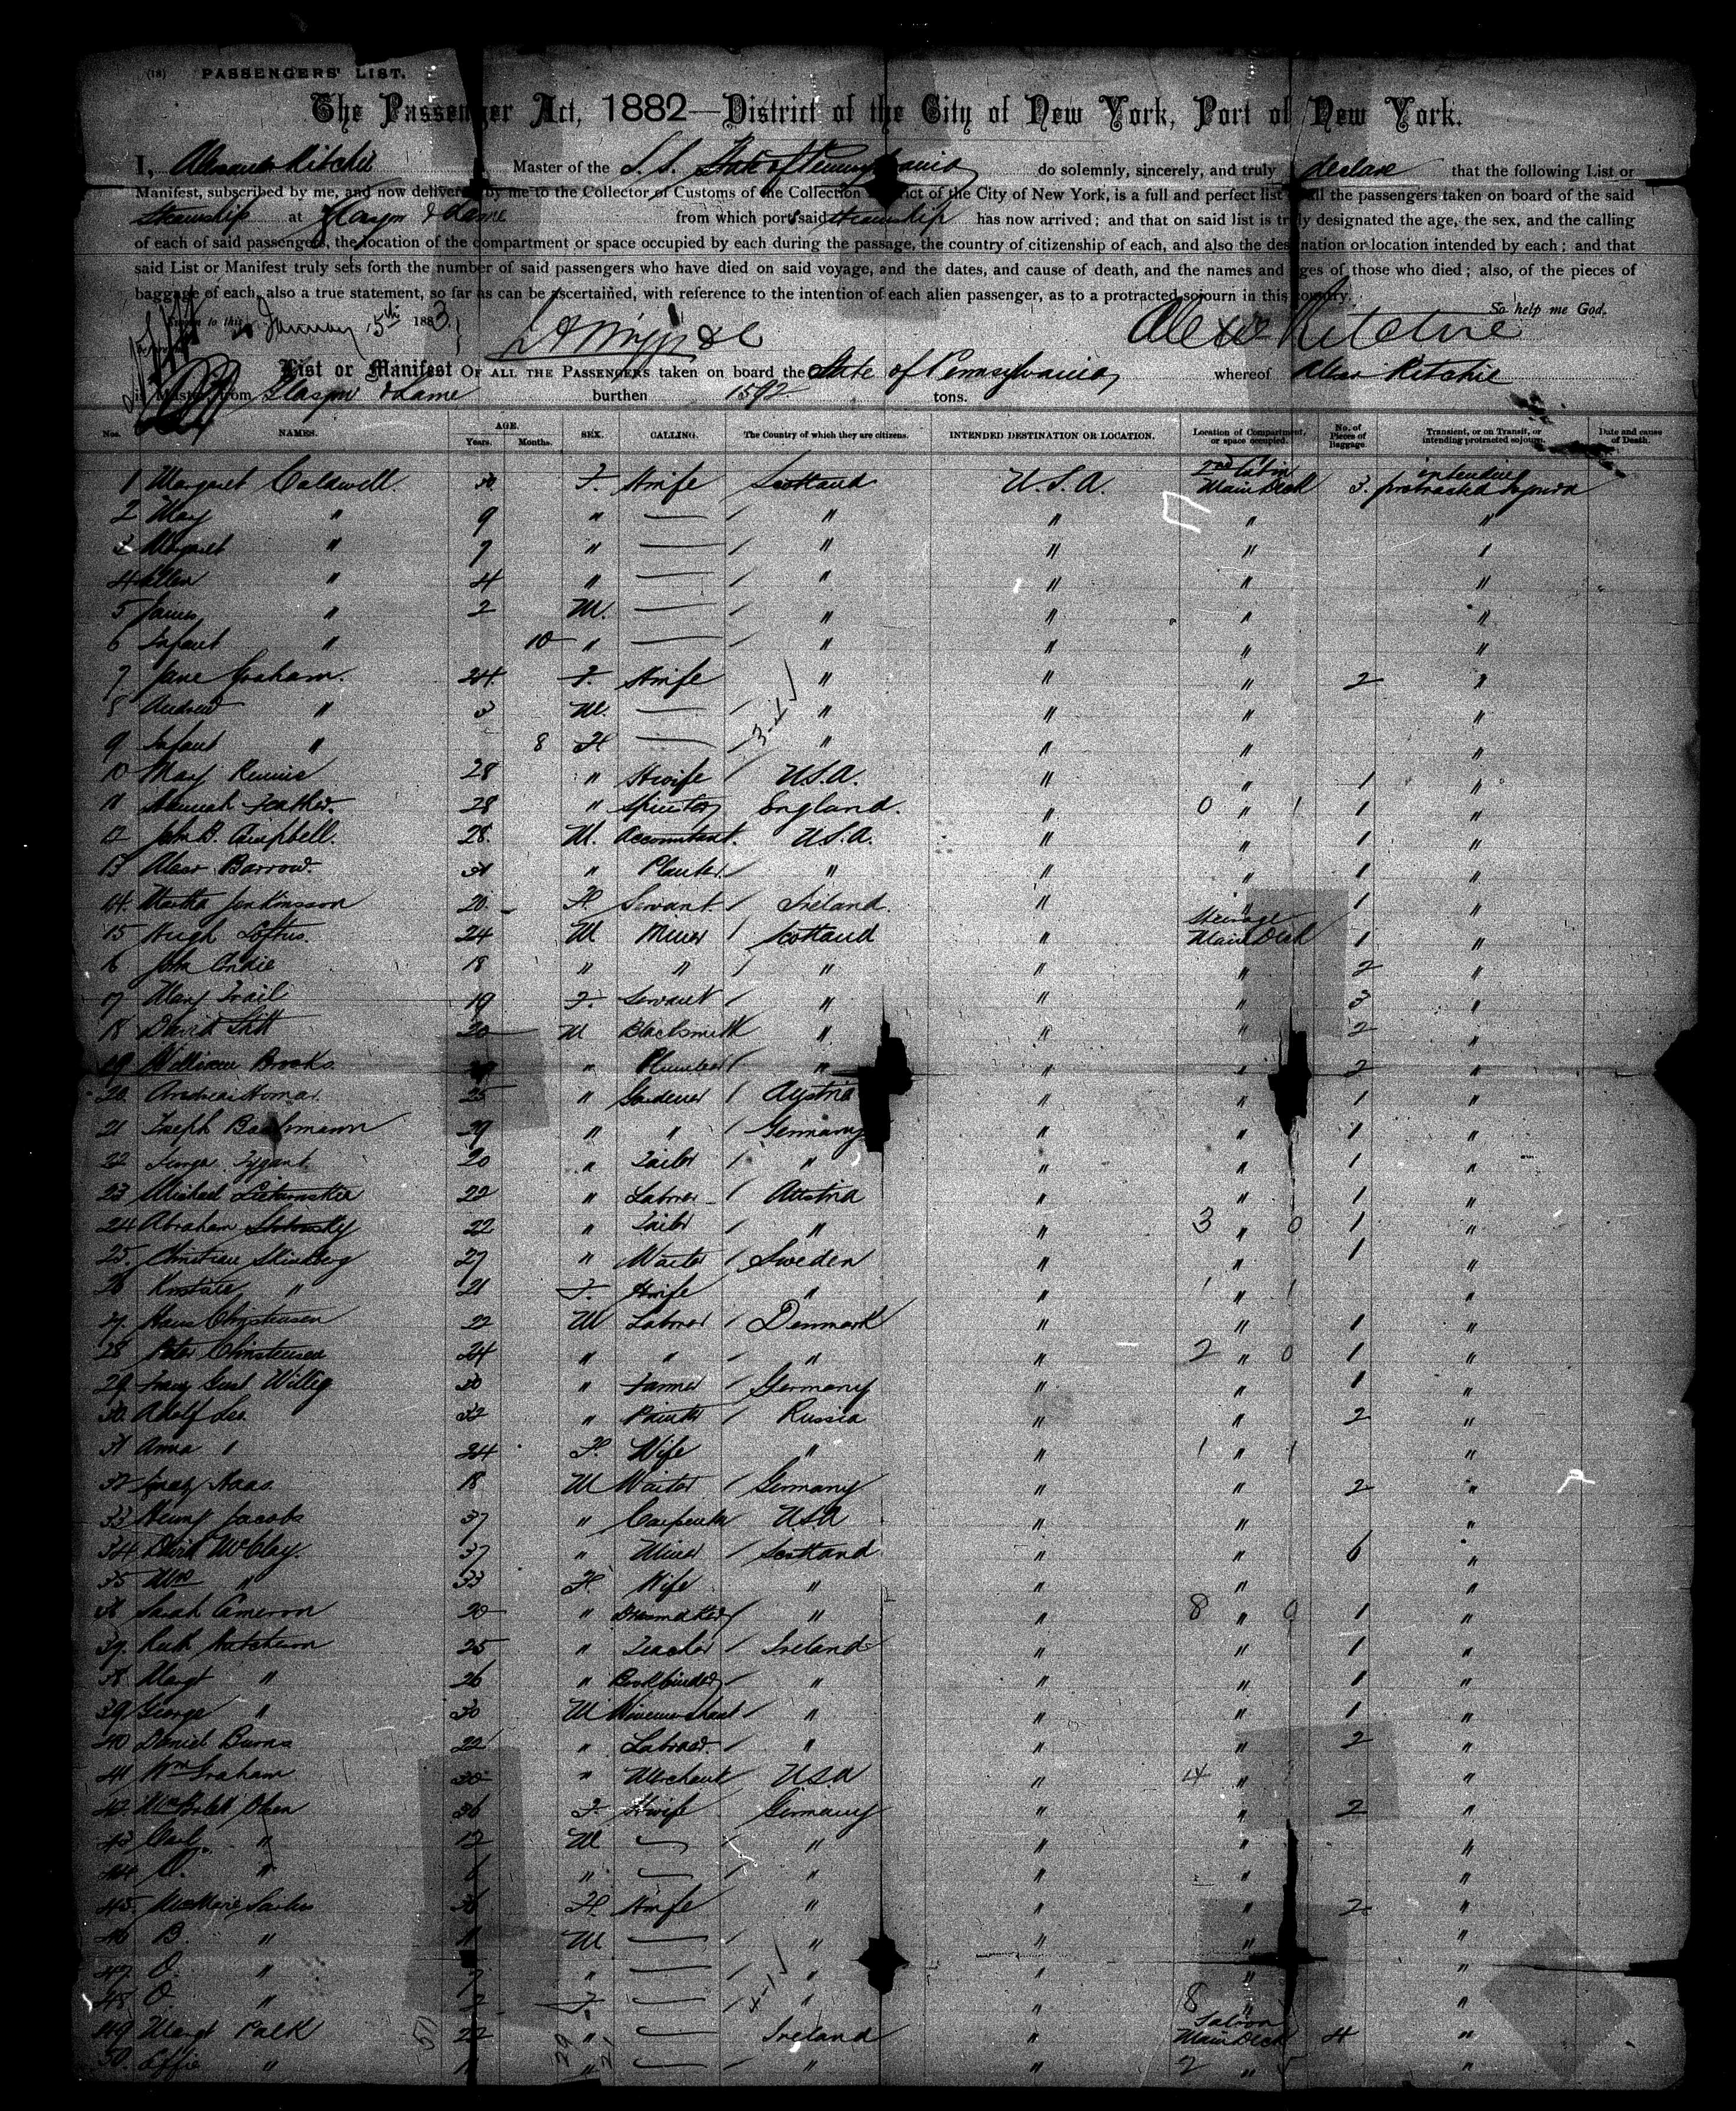 (18) PASSENGERS' LIST.
The Passenger Act, 1882—District of the City of New York, Port of New York.
I, Alexander Ritchie Master of the S.S. State of Pennsylvania do solemnly, sincerely, and truly declare that the following List or
Manifest, subscribed by me, and now delivered by me to the Collector of Customs of the Collection District of the City of New York, is a full and perfect list of all the passengers taken on board of the said
Steamship at Glasgow & Larne from which ports said steamship has now arrived; and that on said list is truly designated the age, the sex, and the calling
of each of said passengers, the location of the compartment or space occupied by each during the passage, the country of citizenship of each, and also the destination or location intended by each; and that
said List or Manifest truly sets forth the number of said passengers who have died on said voyage, and the dates, and cause of death, and the names and ages of those who died; also, of the pieces of
baggage of each, also a true statement, so far as can be ascertained, with reference to the intention of each alien passenger, as to a protracted sojourn in this country.
So help me God.
Sworn to this January 15th 1883 Alexr Ritchie
List or Manifest OF ALL THE PASSENGERS taken on board the State of Pennsylvania whereof Alexr Ritchie
is Master, from Glasgow & Larne burthen 1592 tons.
Nos. NAMES. AGE. Years. Months. SEX. CALLING. The Country of which they are citizens. INTENDED DESTINATION OR LOCATION. Location of Compartment, or space occupied. No. of Pieces of Baggage. Transient, or on Transit, or intending protracted sojourn. Date and cause of Death.
1 Margaret Caldwell 30 F. Hwife Scotland U.S.A. 2nd Cabin Main Deck 3. intending protracted sojourn
2 May " 9 " — " " " "
3 Margaret " 7 " — " " "
4 Ellen " 4 " — " " " "
5 James " 2 M. — " " " "
6 Infant " 10 " — " " " "
7 Jane Graham. 24 F. Hwife " " " 2 "
8 Andrew " 3 M. — " " " "
9 Infant " 8 F — " " " "
10 Mary Rennie 28 " Hwife U.S.A. " " 1 "
11 Hannah Feather. 28 " Spinster England. " 0 " 1 1 "
12 John B. Campbell. 28. M. Accountant. U.S.A. " " 1 "
13 Alexr Barrow. 31 " Planter " " " 1 "
14. Martha Jenkinsson 20 F. Servant Ireland. " " 1 "
15 Hugh Loftus. 24 M Miner Scotland " Steerage Main Deck 1 "
16 John Condie 18 " " " " " 2 "
17 Mary Trail 19 F. Servant " " " 3 "
18 David Stitt 20 M Blacksmith " " " 2 "
19 William Brooks " Plumber " " " 2 "
20 Andreas Homar 25 " Gardener Austria " " 1 "
21 Joseph Bachmann 29 " " Germany " " 1 "
22 20 " Tailor " " " 1 "
23 Michael 22 " Labrer Austria " " 1 "
24 Abraham 22 " Tailor " " 3 " 0 1 "
25. Christian 27 " Waiter Sweden " " 1 "
26 " 21 F. Hwife " " 1 " 1 "
27. Hans Christensen 22 M Labrer Denmark " " 1 "
28 Peter Christensen 24 " " " " 2 " 0 1 "
29 Gust Willig 30 " Farmer Germany " " 1 "
30. Adolf Leo 32 " Painter Russia " " 2 "
31 Anna " 24 F. Wife " " 1 " 1 "
32 Haas 18 M Waiter Germany " " 2 "
33 Henry Jacobs 37 " Carpenter U.S.A " " "
34 David McClay. 37 " Miner Scotland " " 6 "
35 Mrs " 33 F. Wife " " " "
36 Sarah Cameron 20 " Dressmaker " " 8 " 0 1 "
37. Ruth Hutcheson 25 " Teacher Ireland " " 1 "
38 Margt " 26 " Bookbinder " " " 1 "
39 George " 30 M Winemerchant " " " 1 "
40 Daniel Burns 22 " Labraer. " " " 2 "
41 Wm Graham 30 " Merchant U.S.A " 14 " "
42 Olsen 36 F. Hwife Germany " " 2 "
43 Carl " 12 M — " " " "
44 O. " 6 " — " " " "
45. 36 F. Hwife " " " 2 "
46 B. " 11 M — " " " "
47 O. " 7 " — " " " "
48. O. " 2 F — " " 8 " "
49 Margt Palk 22 " — Ireland " Saloon Main Deck 4 "
50. Effie " 11 " — " " 2 " 5 "